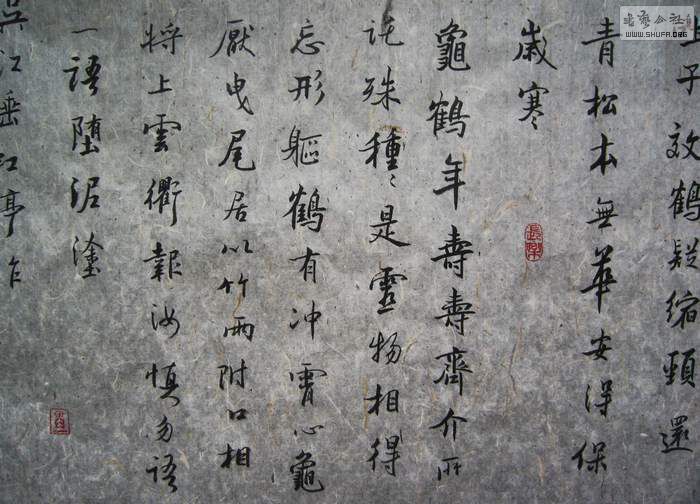 子效鶴疑縮頸還
青松本無華安得保
歲寒
龜鶴年壽壽齊介所
託殊種〻是靈物相得
忘形軀鶴有冲霄心龜
厭曳尾居以竹兩附口相
將上雲衢報汝慎勿語
一語墮泥塗
江垂虹亭作
书艺公社
WWW.SHUFA.ORG